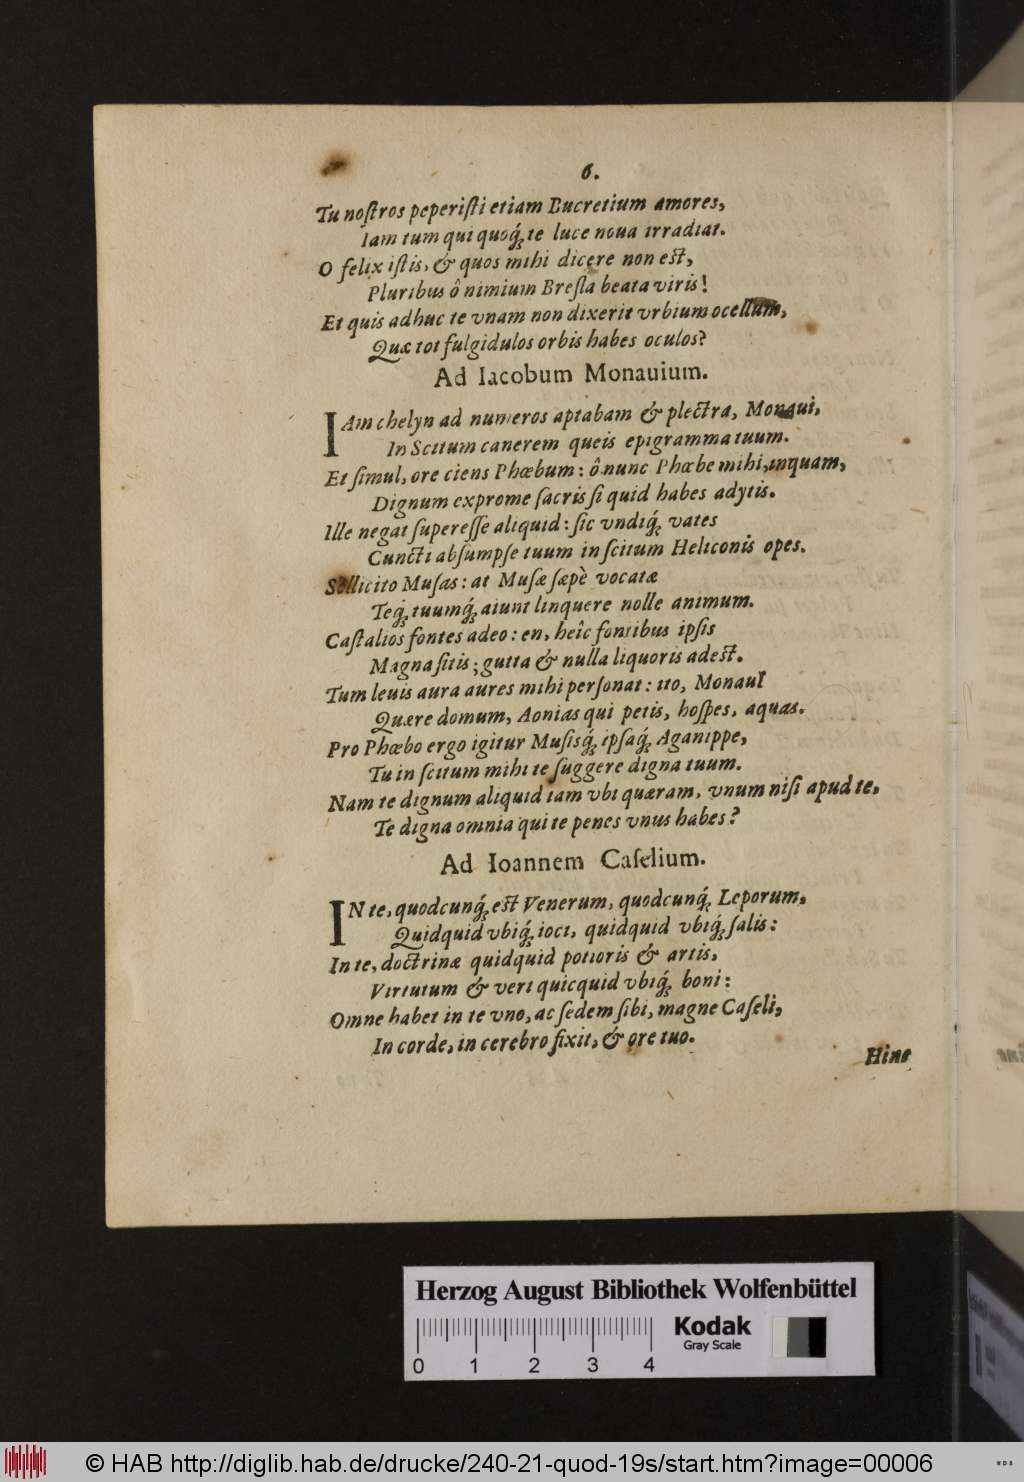 6.
Tu noſtros peperiſti etiam Bucretium amores,
Iam tum qui quoq́; te luce noua irradiat.
O felix iſtis, & quos mihi dicere non est,
Pluribus ô nimium Breſla beata viris!
Et quis adhuc te vnam non dixerit vrbium ocellum,
Quæ tot fulgidulos orbis habes oculos?
Ad Iacobum Monauium.
IAm chelyn ad numeros aptabam & plectra, Monaui,
In Scitum canerem queis epigramma tuum.
Et ſimul, ore ciens Phœbum: ô nunc Phœbe mihi, inquam,
Dignum exprome ſacris ſi quid habes adytis.
Ille negat ſupereſſe aliquid: ſic vndiq́; vates
Cuncti abſumpſe tuum in ſcitum Heliconis opes.
Sollicito Muſas: at Muſæ ſæpè vocatæ
Teq́; tuumq́; aiunt linquere nolle animum.
Caſtalios fontes adeo: en, heîc fontibus ipſis
Magna ſitis; gutta & nulla liquoris adest.
Tum leuis aura aures mihi perſonat: ito, Monaui
Quære domum, Aonias qui petis, hoſpes, aquas.
Pro Phœbo ergo igitur Muſisq́; ipſaq́; Aganippe,
Tu in ſcitum mihi te ſuggere digna tuum.
Nam te dignum aliquid iam vbi quæram, vnum niſi apud te,
Te digna omnia qui te penes vnus habes?
Ad Ioannem Caſelium.
IN te, quodcunq́; est Venerum, quodcunq́; Leporum,
Quidquid vbiq́; ioci, quidquid vbiq́; ſalis:
In te, doctrinæ quidquid potioris & artis,
Virtutum & veri quicquid vbiq́; boni:
Omne habet in te vno, ac ſedem ſibi, magne Caſeli,
In corde, in cerebro fixit, & ore tuo.
Hinc
Herzog August Bibliothek Wolfenbüttel
Kodak
Gray Scale
0 1 2 3 4
© HAB http://diglib.hab.de/drucke/240-21-quod-19s/start.htm?image=00006